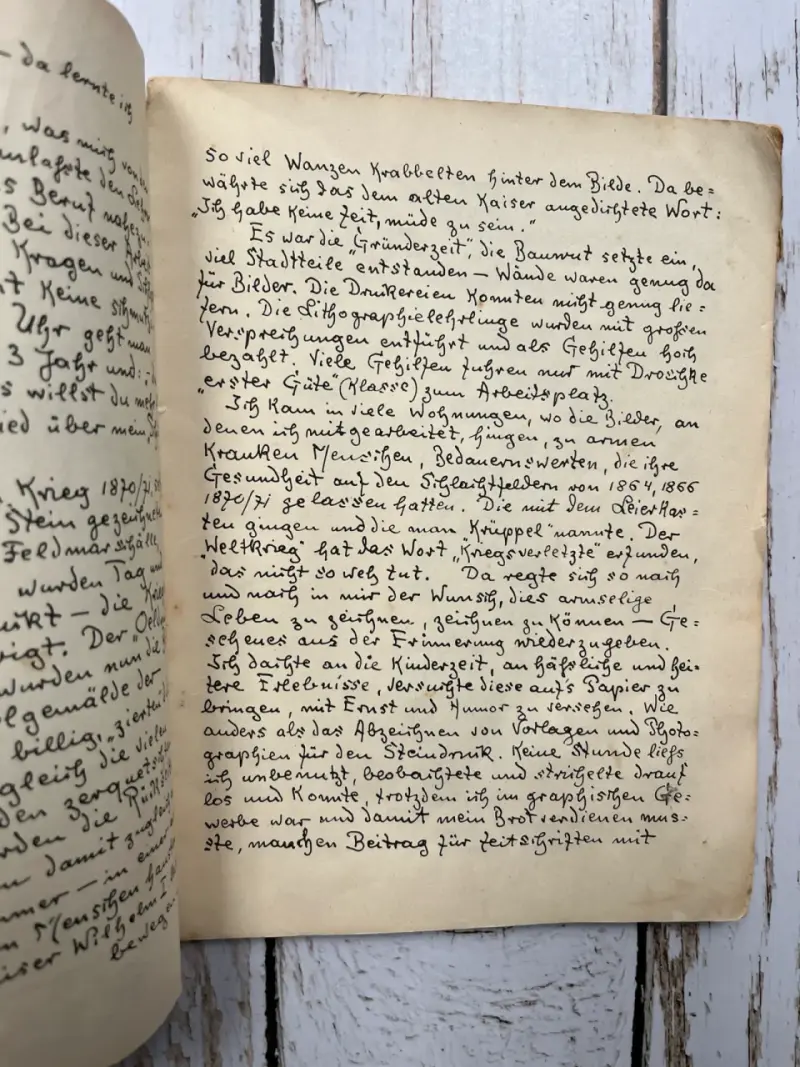 – da lernte ich
, was mich von
anlaßte den
s Beruf nahezu
Bei dieser
Kragen und
t keine schmutz
Uhr geht man
3 Jahr und :
s willst du mehr
ied über mein
Krieg 1870/71,
Stein gezeichnet
Feldmarschälle
wurden Tag
uckt – die
igt. Der
wurden nun die
lgemälde der
billig, zierten
gleich die vielen
den zerquetsch
rden die
damit
mmer – in einer
n Menschen
iser Wilhelm I
bewegen
so viel Wanzen krabbelten hinter dem Bilde. Da be=
währte sich das dem alten Kaiser angedichtete Wort:
„Ich habe keine Zeit, müde zu sein."
Es war die „Gründerzeit", die Bauwut setzte ein,
viel Stadtteile entstanden – Wände waren genug da
für Bilder. Die Druckereien konnten nicht genug lie=
fern. Die Lithographielehrlinge wurden mit großen
Versprechungen entführt und als Gehilfen hoch
bezahlt. Viele Gehilfen fuhren nur mit Droschke
„erster Güte" (Klasse) zum Arbeitsplatz.
Ich kam in viele Wohnungen, wo die Bilder, an
denen ich mitgearbeitet, hingen, zu armen
kranken Menschen, Bedauernswerten, die ihre
Gesundheit auf den Schlachtfeldern von 1864, 1866
1870/71 gelassen hatten. Die mit dem Leierkas=
ten gingen und die man „Krüppel" nannte. Der
„Weltkrieg" hat das Wort „Kriegsverletzte" erfunden,
das nicht so weh tut. Da regte sich so nach
und nach in mir der Wunsch, dies armselige
Leben zu zeichnen, zeichnen zu können – Ge=
sehenes aus der Erinnerung wiederzugeben.
Ich dachte an die Kinderzeit, an häßliche und hei=
tere Erlebnisse, versuchte diese aufs Papier zu
bringen, mit Ernst und Humor zu versehen. Wie
anders als das Abzeichnen von Vorlagen und Photo=
graphien für den Steindruck. Keine Stunde ließ
ich unbenutzt, beobachtete und strichelte drauf
los und konnte, trotzdem ich im graphischen Ge=
werbe war und damit mein Brot verdienen mus=
ste, manchen Beitrag für Zeitschriften mit